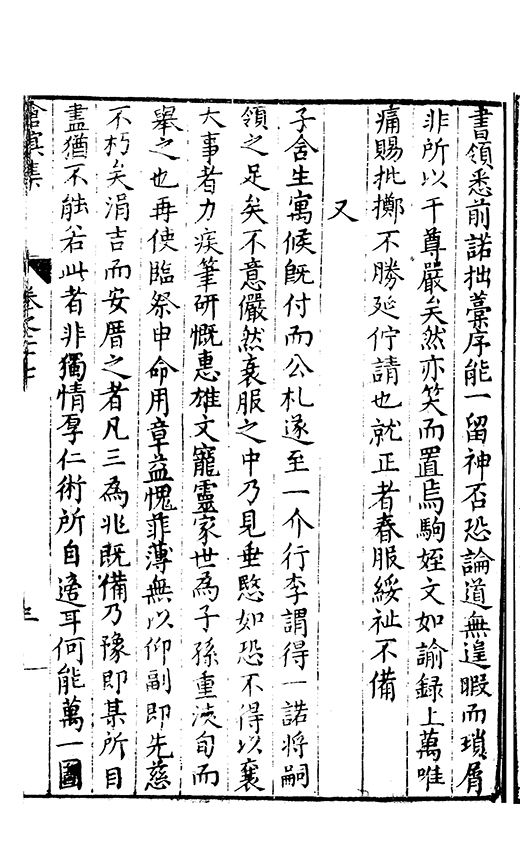 書領悉前諾拙藁序能一留神否恐論道無遑暇而瑣屑
非所以干尊嚴矣然亦笑而置焉駒姪文如諭録上萬唯
痛賜批擲不勝延佇請也就正者春服綏祉不備
又
子舍生寓候既付而公札遂至一介行李謂得一諾將嗣
領之足矣不意儼然衰服之中乃見垂愍如恐不得以襄
大事者力疾筆研慨惠雄文寵靈家世為子孫重浹旬而
舉之也再使臨祭申命用章益愧菲薄無以仰副即先慈
不朽矣涓吉而安厝之者凡三為兆既備乃豫即某所目
盡猶不能若此者非獨情厚仁術所自邃耳何能萬一圖
滄溟集
卷之二十七
三